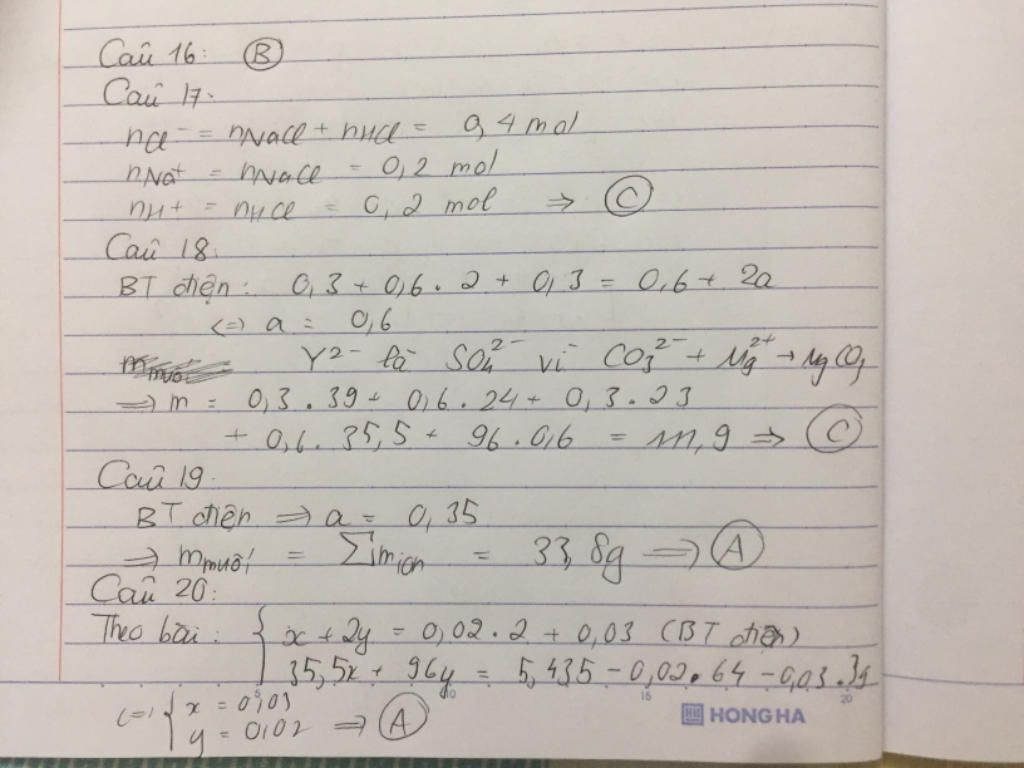 Câu 16: B
Câu 17:
nCl⁻ = nNaCl + nHCl = 0,4 mol
nNa⁺ = nNaCl = 0,2 mol
nH+ = nHCl = 0,2 mol ⇒ C
Câu 18:
BT điện: 0,3 + 0,6.2 + 0,3 = 0,6 + 2a
<=> a = 0,6
Y²⁻ là SO₄²⁻ vì CO₃²⁻ + Mg²⁺ → MgCO₃
⇒ m = 0,3.39 + 0,6.24 + 0,3.23
+ 0,6.35,5 + 96.0,6 = 111,9 ⇒ C
Câu 19:
BT điện ⇒ a = 0,35
⇒ mmuối = Σmion = 33,8g ⇒ A
Câu 20:
Theo bài: { x + 2y = 0,02.2 + 0,03 (BT điện)
35,5x + 96y = 5,435 - 0,02.64 - 0,03.39
5 10 15 20
<=> { x = 0,03
y = 0,02 ⇒ A
HONG HA